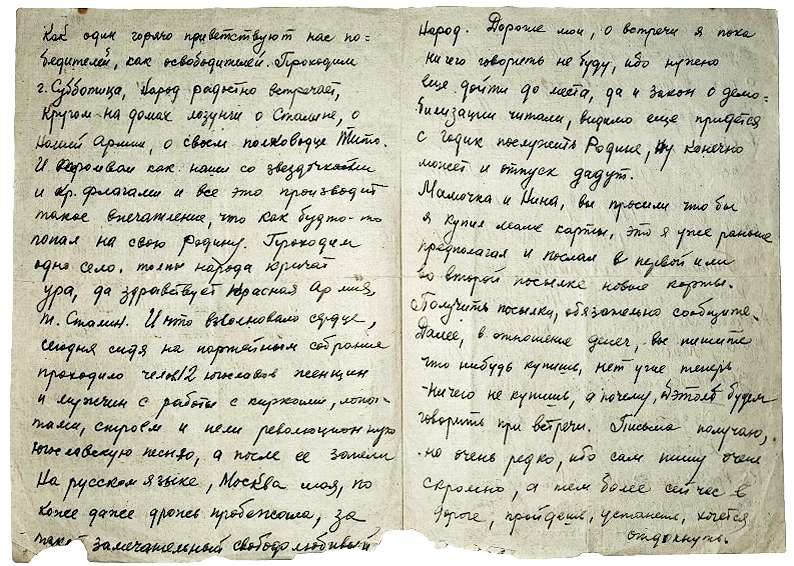 Как один горячо приветствуют нас по-
бедителей, как освободителей. Проходим
г. Субботица, народ радостно встречает,
кругом на домах лозунги о Сталине, о
Нашей Армии, о своем полководце Тито.
И как наши со звездочками
и кр. флагами и все это производит
такое впечатление, что как будто-то
попал на свою Родину. Проходим
одно село. толпы народа кричат
ура, да здравствует Красная Армия,
т. Сталин. И что взволновало сердце,
сегодня сидя на партейным собрание
проходило челов 12 югославов женщин
и мужчин с работы с кирками, лопа-
тами, строем и пели революционную
югославскую песню, а после ее запели
на русском языке, Москва моя, по
коже даже дрожь пробежала, за
такой замечательный свободолюбивый
народ. Дорогие мои, о встречи я пока
ничего говорить не буду, ибо нужно
еще дойти до места, да и закон о демо-
билизации читали, видимо еще придется
с годик послужить Родине, ну конечно
может и отпуск дадут.
Мамочка и Нина, вы просили что бы
я купил маме карты, это я уже раньше
предполагал и послал в первой или
во второй посылке новые карты.
Получить посылку, обязательно сообщите.
Далее, в отношение денег, вы пишите
что нибудь купишь, нет уже теперь
ничего не купишь, а почему, об этом будем
говорить при встречи. Письма получаю,
но очень редко, ибо сам пишу очень
скромно, а тем более сейчас в
дороге, пройдешь, устанешь, хочется
отдохнуть.